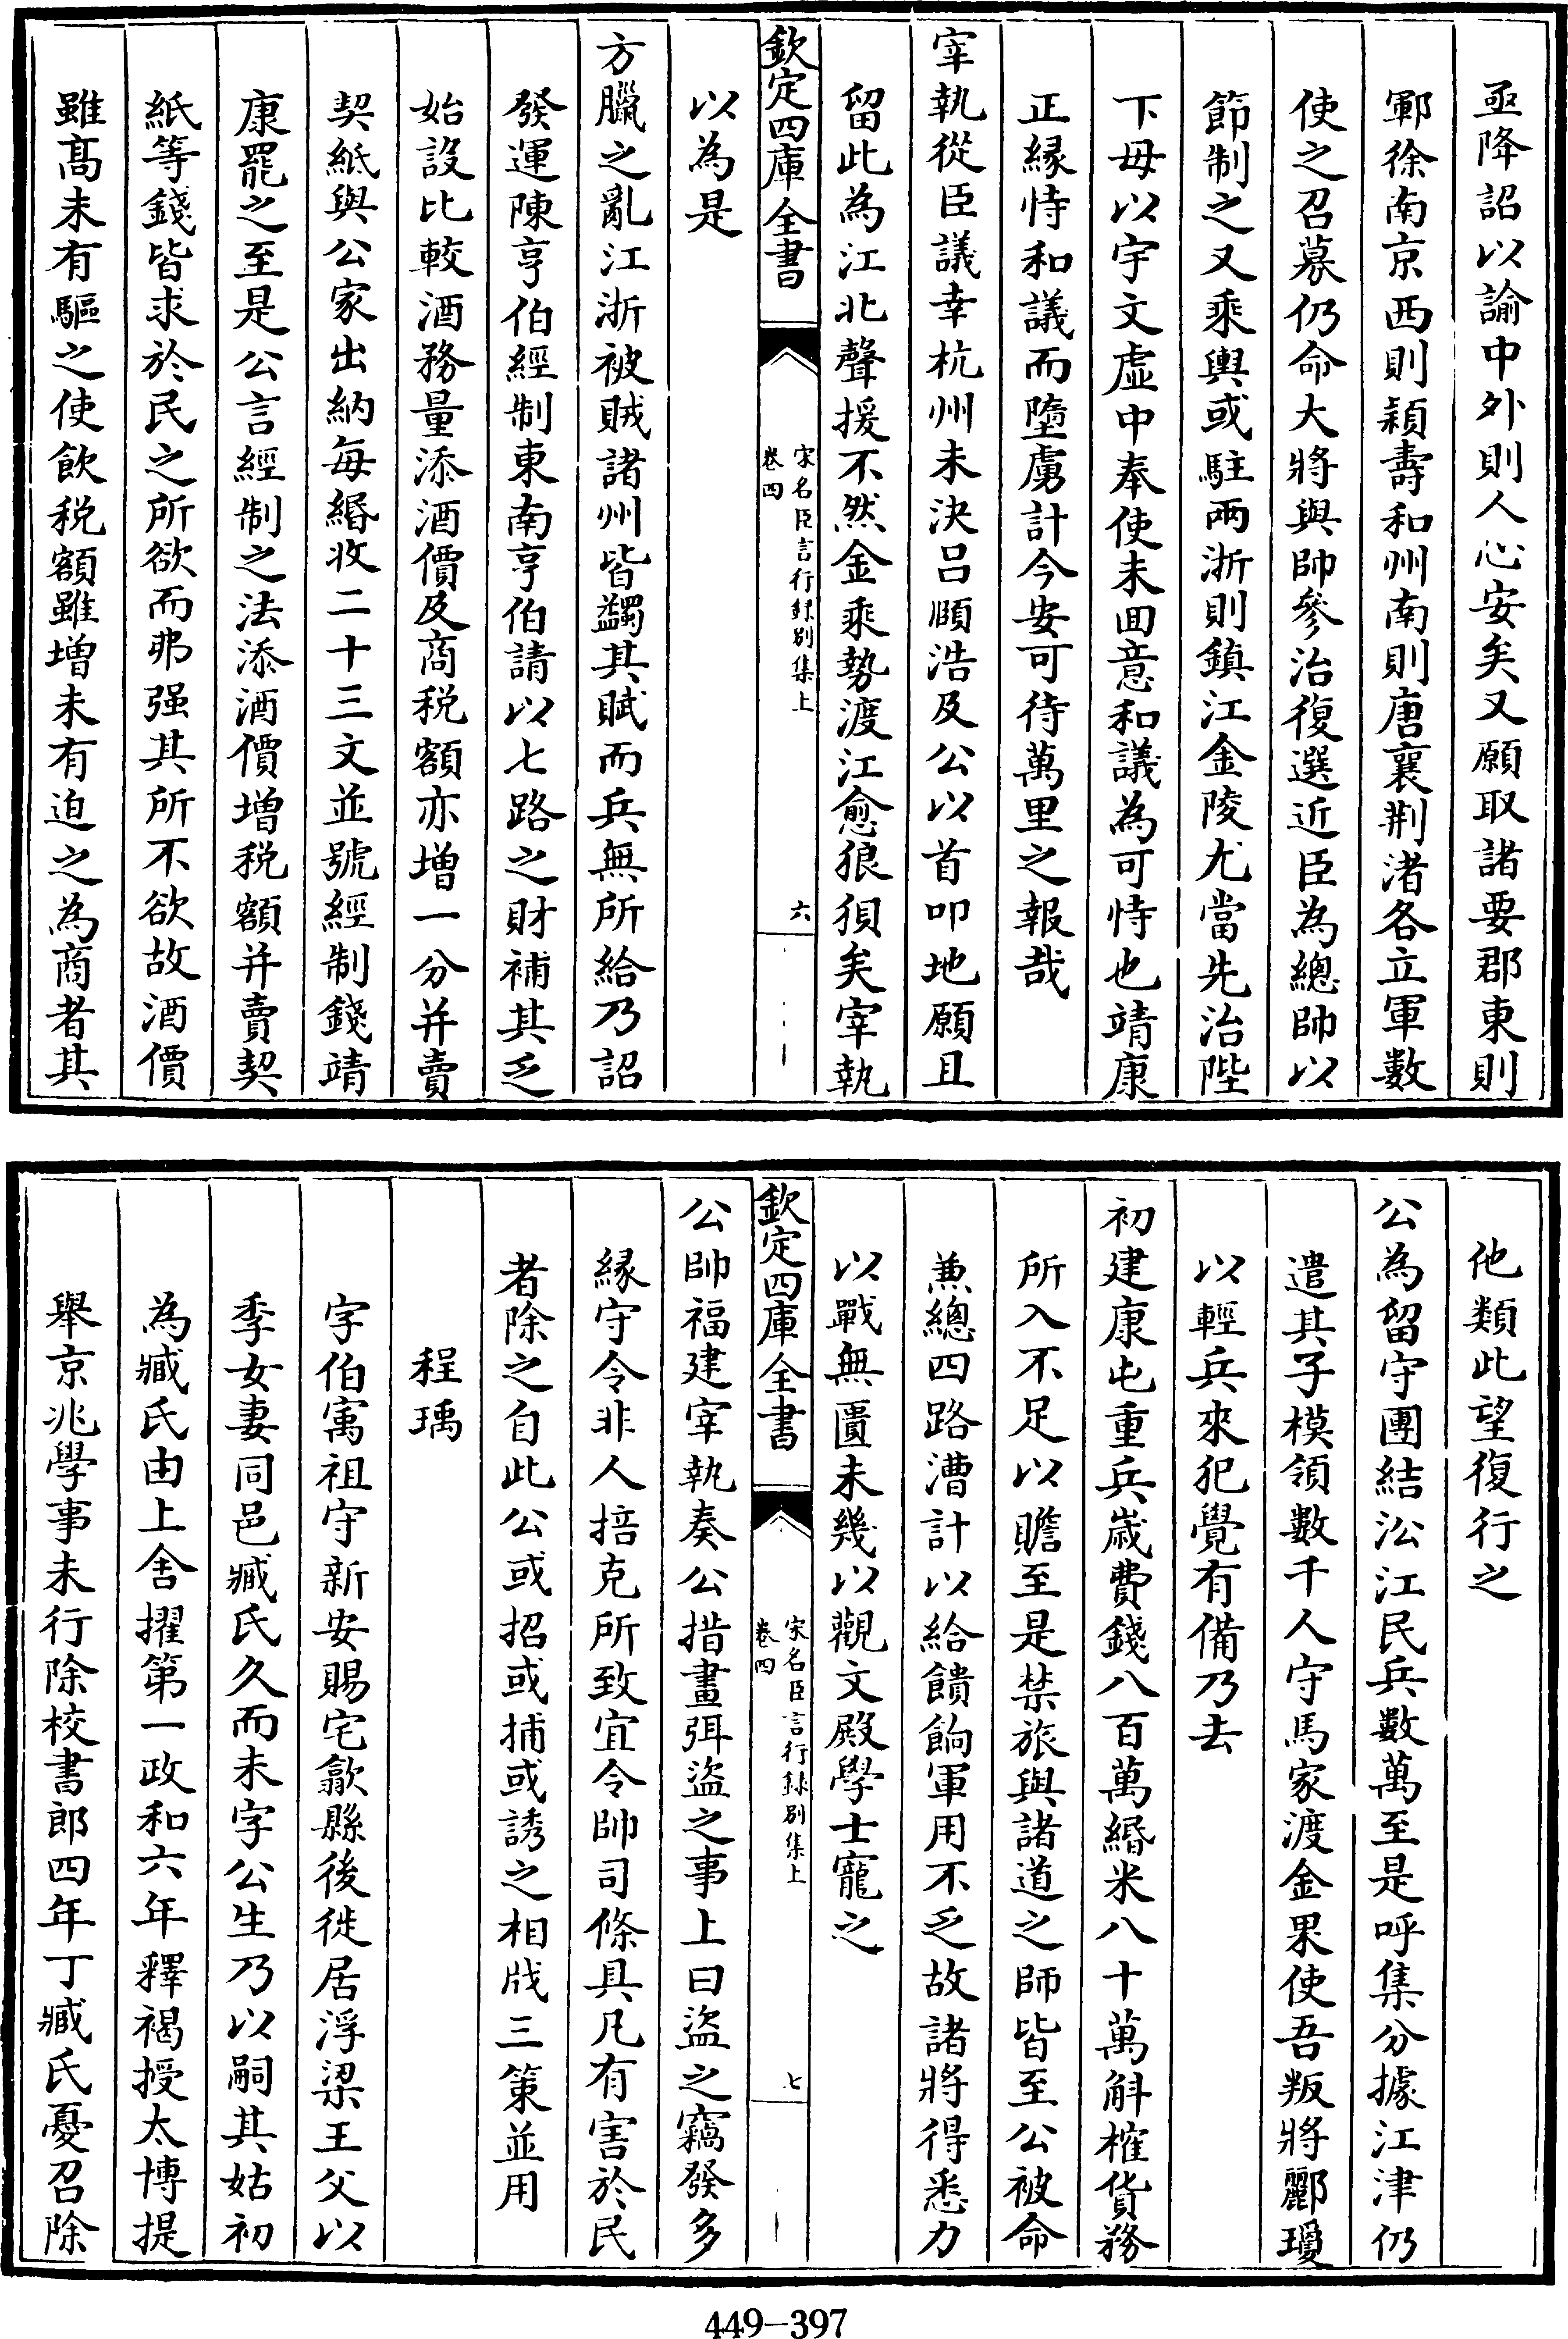 亟降詔以諭中外則人心安矣又願取諸要郡東則
鄆徐南京西則潁壽和州南則唐襄荆渚各立軍數
使之召募仍命大將與帥參治復選近臣為總帥以
節制之又乘輿或駐兩浙則鎮江金陵尤當先治陛
下毋以宇文虛中奉使未囬意和議為可恃也靖康
正緣恃和議而墮虜計今安可待萬里之報哉
宰執從臣議幸杭州未決吕頤浩及公以首叩地願且
留此為江北聲援不然金乘勢渡江愈狼狽矣宰執
以為是
欽定四庫全書
宋名臣言行録别集上
卷四
六
方臘之亂江浙被賊諸州皆蠲其賦而兵無所給乃詔
發運陳亨伯經制東南亨伯請以七路之財補其乏
始設比較酒務量添酒價及商税額亦增一分并賣
契紙與公家出納每緡收二十三文並號經制錢靖
康罷之至是公言經制之法添酒價增税額并賣契
紙等錢皆求於民之所欲而弗强其所不欲故酒價
雖髙未有驅之使飲税額雖增未有迫之為商者其
他類此望復行之
公為留守團結㳂江民兵數萬至是呼集分據江津仍
遣其子模領數千人守馬家渡金果使吾叛將酈瓊
以輕兵來犯覺有備乃去
初建康屯重兵歳費錢八百萬緡米八十萬斛榷貨務
所入不足以贍至是禁旅與諸道之師皆至公被命
兼總四路漕計以給饋餉軍用不乏故諸將得悉力
以戰無匱未幾以觀文殿學士寵之
欽定四庫全書
宋名臣言行録别集上
卷四
七
公帥福建宰執奏公措畫弭盜之事上曰盜之竊發多
緣守令非人掊克所致宜令帥司條具凡有害於民
者除之自此公或招或捕或誘之相戕三策並用
程瑀
字伯㝢祖守新安賜宅歙縣後徙居浮梁王父以
季女妻同邑臧氏久而未字公生乃以嗣其姑初
為臧氏由上舍擢第一政和六年釋褐授太博提
舉京兆學事未行除校書郎四年丁臧氏憂召除
449-397